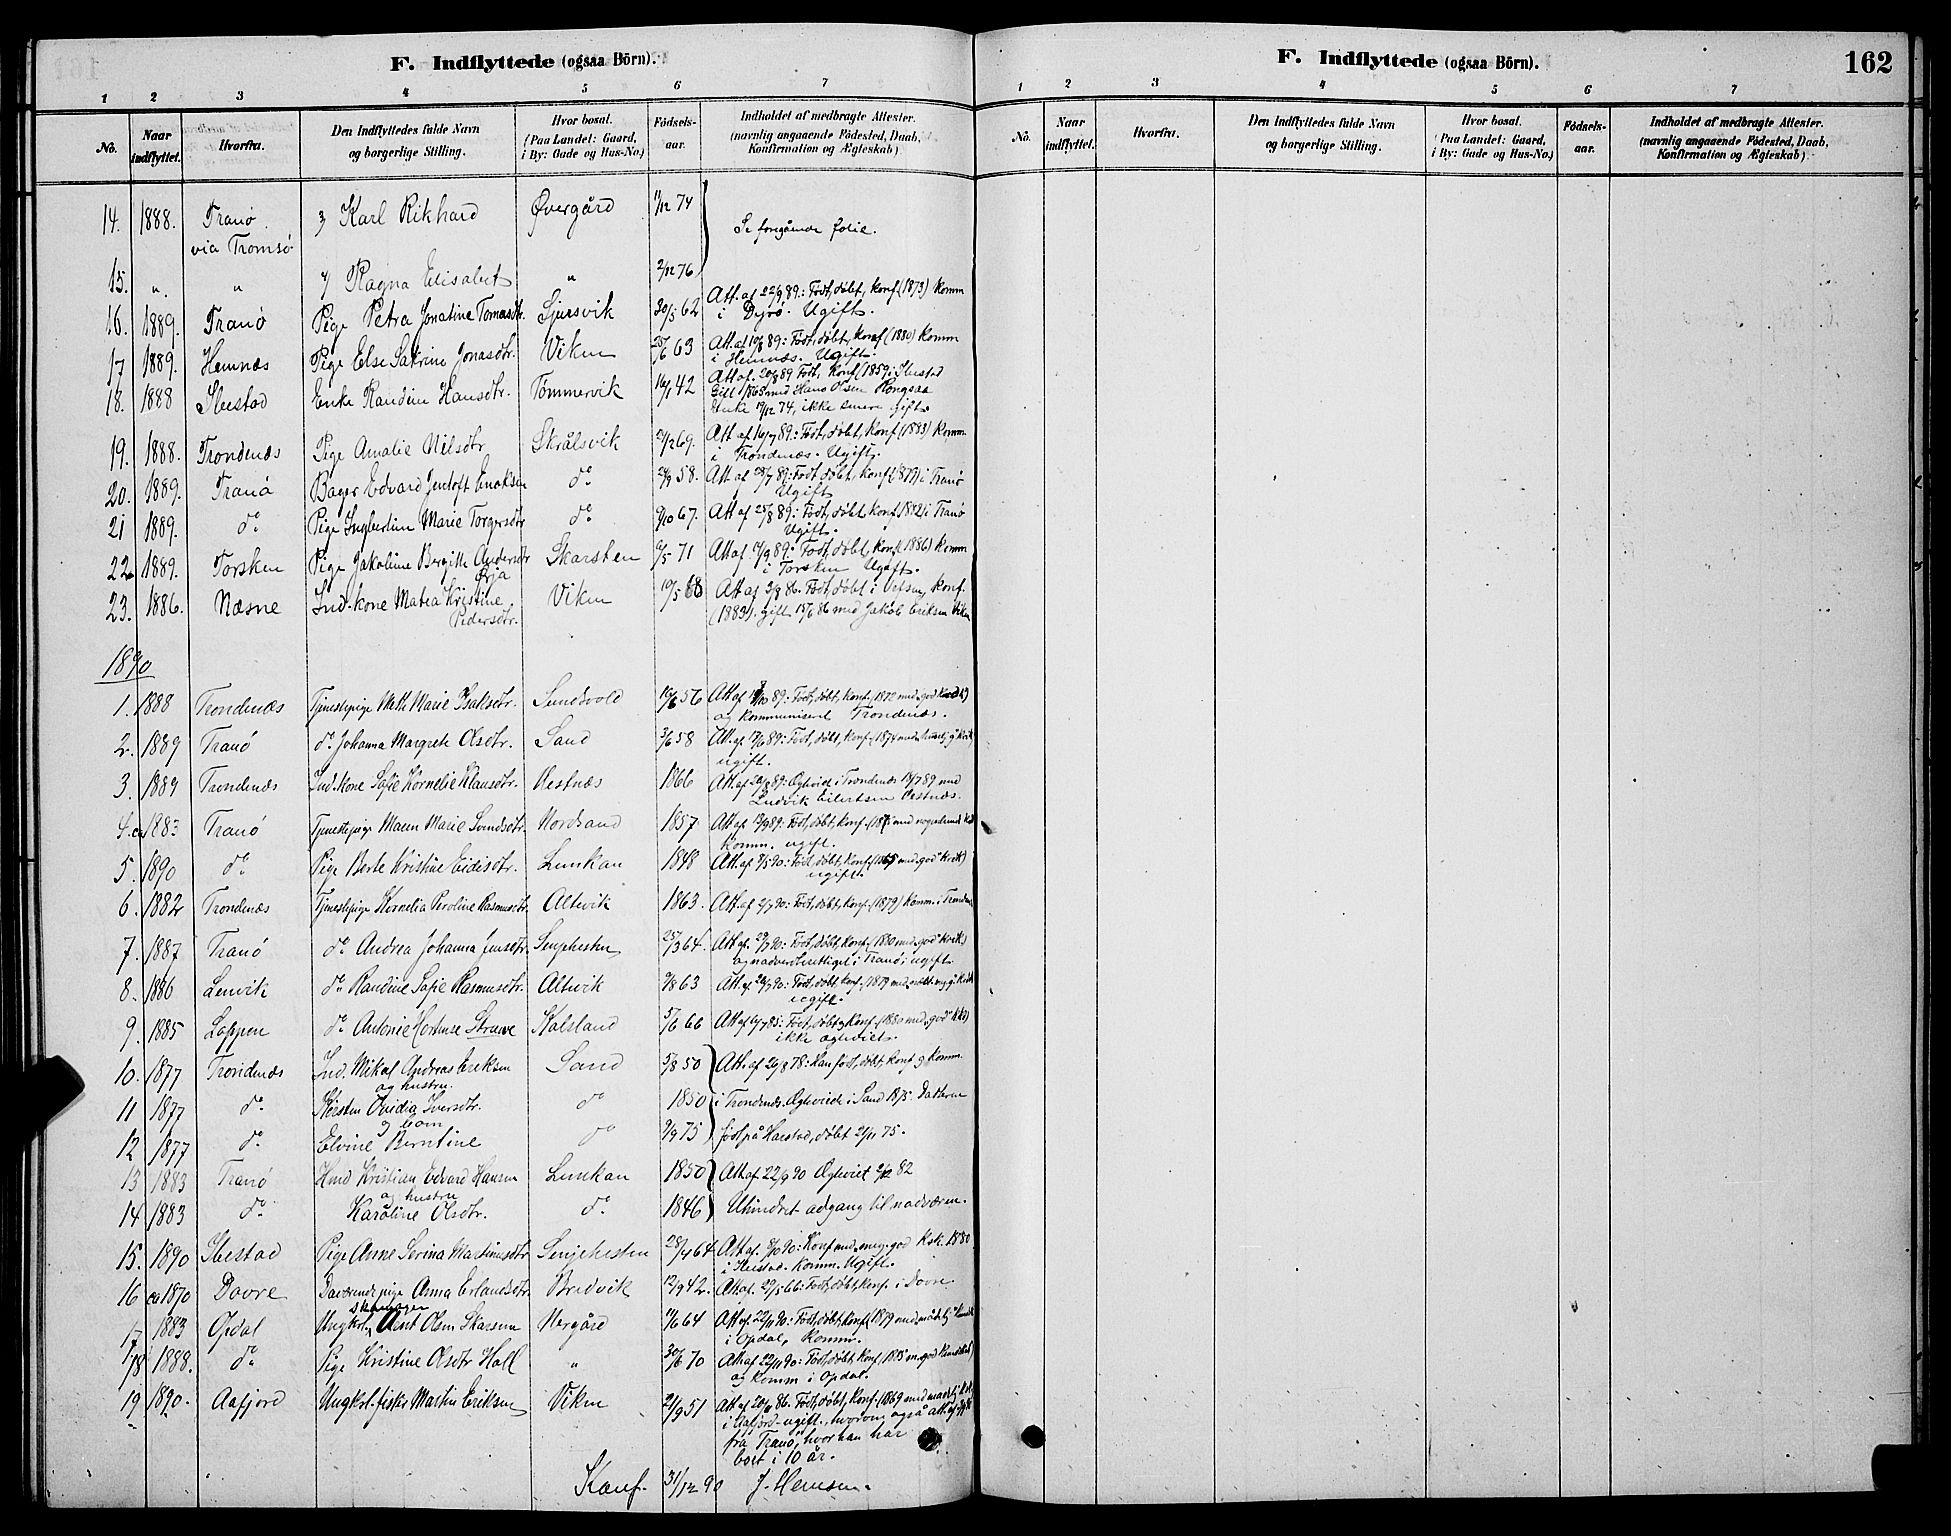 F. Indflyttede (ogsaa Börn).
1 2 3 4 5 6 7
No. Naar indflyttet. Hvorfra. Den Indflyttedes fulde Navn og borgerlige Stilling. Hvor bosat. (Paa Landet: Gaard, i By: Gade og Hus-No.) Födsels-aar. Indholdet af medbragte Attester. (navnlig angaaende Födested, Daab, Konfirmation og Ægteskab)
14. 1888. Tranö 3 Karl Rikhard Övergård 11/12 74 Se foregående folie.
via Tromsö
15. " " 4 Ragna Elisabet " 2/12 76
16. 1889. Tranö Pige Petra Jonatine Tomasdtr. 30/5 62 Att. af 22/9 89: Födt, döbt, konf. (1873) Komm
i Dyrö. Ugift.
17 1889. Hemnæs Pige Else Katrine Jonasdtr. Viken 25/6 63 Att. af 89: Födt, döbt, konf (1880) komm
i Hemnæs. Ugift.
18. 1888 Ibestad Enke Randine Hansdtr. Tömmervik 16/1 42 Att af. 20/8 89 Födt, Konf. (1859 i Ibestad
Gift 1868 med Hans Olsen Rongsaa
Enke 74, ikke senere gift.
19. 1888. Trondenæs Pige Amalie Nilsdtr Skrålsvik 69. Att af 16/7 89: Födt, döbt, konf (1883) Komm.
i Trondenæs. Ugift.
20. 1889. Tranö Bager Edvard Jentoft Enoksen do 58. Att af 28/7 89: Födt, döbt, konf (1877) i Tranö
Ugift
21 1889. do Pige Ingbertine Marie Torgersdtr do 9/10 67. Att af 25/8 89: Födt, döbt, konf 1882 i Tranö
Ugift.
22. 1889. Torsken Pige Jakobine Bergitte Andersdtr Skarsten 71 Att af 89: Födt, döbt, konf. (1886) Komm
i Torsken Ugift.
23. 1886. Næsne Ind. kone Matea Kristine Viken 10/5 68 Att af 86. Födt, döbt i Vefsen, konf.
Pedersdtr. (1883). gift 86 med Jakob Eriksen Viken
1890
1. 1888 Trondenæs Tjenestepige Meth Marie Isaksdtr. Sundsvold 56 Att af 89: Födt, döbt, konf. (1872 med god kvdsk)
og kommuniseret Trondenæs.
2. 1889 Tranö do Johanna Margrete Olsdtr. Sand 3/6 58 Att. af 17/6 89: Födt, döbt, konf. (1874 med
ugift.
3. 1889 Trondenæs Ind. kone Sofie Kornelie Klausdtr. Vestnæs 1866 Att. af 20/8 89: Ægteviet i Trondenæs 89 med
Ludvik Eilertsen Vestnæs.
4. ca 1883 Tranö Tjenestepige Maren Marie Svendsdtr. Nordsand 1857 Att af 89: Födt, döbt, konf.
komm. ugift.
5. 1890 do Pige Berte Kristine Eidisdtr. Lemkan 1848 Att. af 90: Födt, döbt, konf. (1865 med god kvsk)
ugift.
6. 1882 Trondenæs Tjenestepige Kornelia Peroline Rasmusdtr. Altevik 1863. Att. af 90: Födt, döbt, konf. (1879) Komm. i Trondenæs
7. 1887 Tranö do Andrea Johanna Jensdtr. Senjehesten 25/3 64. Att af. 90: Födt, döbt, konf. (1880 med god kvsk)
og nadverberettiget i Tranö; ugift.
8. 1886 Lenvik do Randine Sofie Rasmusdtr. Altevik 63 Att. af 90: Födt, döbt, konf. (1879 med
ugift.
9. 1885 Loppen do Antonie Hortense Struwe Kalsland 5/6 66 Att af 85: Födt, döbt og konf. (1880 med god ksk)
ikke ægteviet.
10. 1877 Trondenæs Ind. Mikal Andreas Eriksen Sand 5/8 50 Att. af 26/8 78: Han födt, döbt, konf. og komm.
og hustru
11 1877 do. Kirsten Ovidia Iversdtr. do 1850 i Trondenæs. Ægteviede i Sand 1875. Datteren
og barn
12 1877 do. Elvine Berntine do 9/9 75 födt på Harstad, döbt 21/11 75.
13 1883 Tranö Hmd Kristian Edvard Hansen Lemkan 1850 Att af 22/9 90 Ægteviet 82
og hustru
14 1883 do. Karoline Olsdtr. do. 1846 Uhindret adgang til nadveren.
15. 1890 Ibestad Pige Anne Serina Martinusdtr Senjehesten 28/4 64 Att af. 90: Konf. med meg. god ksk. 1880
i Ibestad. Komm. Ugift.
16 ca 1870 Dovre Daværende pige Anna Erlandsdtr. Bredvik 12/9 42. Att af. 29/5 66: Födt, döbt, konf. i Dovre.
17 1883 Opdal Ungkrl. skomager Arnt Olsen Skarsem Vergård 11/6 64 Att af 22/11 90: Födt, döbt, konf. (1879 med
i Opdal, Komm.
18 1888. do Pige Kristine Olsdtr Holl " 30/6 70 Att af 22/11 90: Födt, döbt, konf. (1885 m. god kundskab)
og komm i Opdal.
19 1890. Aafjord Ungkrl. fisker Martin Eriksen Viken 21/9 51 Att af 86. Födt, döbt, konf. (1869 med
i Aafjord – ugift, hvorom også att. af
fra Tranö, hvor han har
boet i 10 år.
Konf. 31/12 90 J. Hemsen.
F. Indflyttede (ogsaa Börn).
162
1 2 3 4 5 6 7
No. Naar indflyttet. Hvorfra. Den Indflyttedes fulde Navn og borgerlige Stilling. Hvor bosat. (Paa Landet: Gaard, i By: Gade og Hus-No.) Födsels-aar. Indholdet af medbragte Attester. (navnlig angaaende Födested, Daab, Konfirmation og Ægteskab)